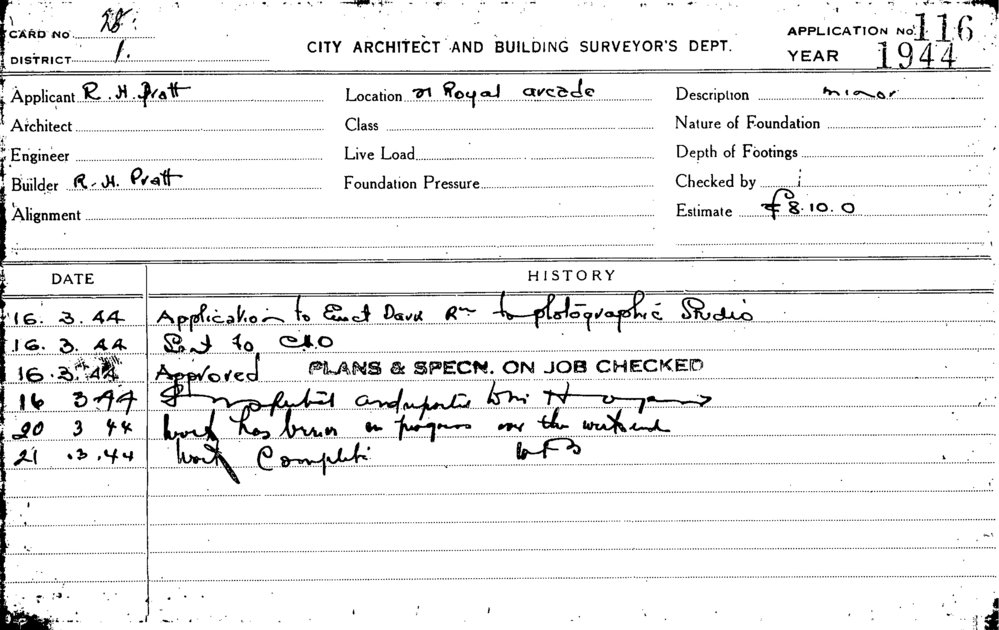 CARD No. 28.
DISTRICT 1.
CITY ARCHITECT AND BUILDING SURVEYOR'S DEPT.
APPLICATION No. 116
YEAR 1944
Applicant R. H. Pratt
Location 21 Royal arcade
Description minor
Architect
Class
Nature of Foundation
Engineer
Live Load
Depth of Footings
Builder R. H. Pratt
Foundation Pressure
Checked by
Alignment
Estimate £8.10.0
DATE HISTORY
16. 3. 44 Application to Erect Dark Rm to photographic Studio
16. 3. 44 Sent to
16. 3. 44 Approved PLANS & SPECN. ON JOB CHECKED
16 3 44
20 3 44 Work has been in progress over the weekend
21 . 3 . 44 Work Complete